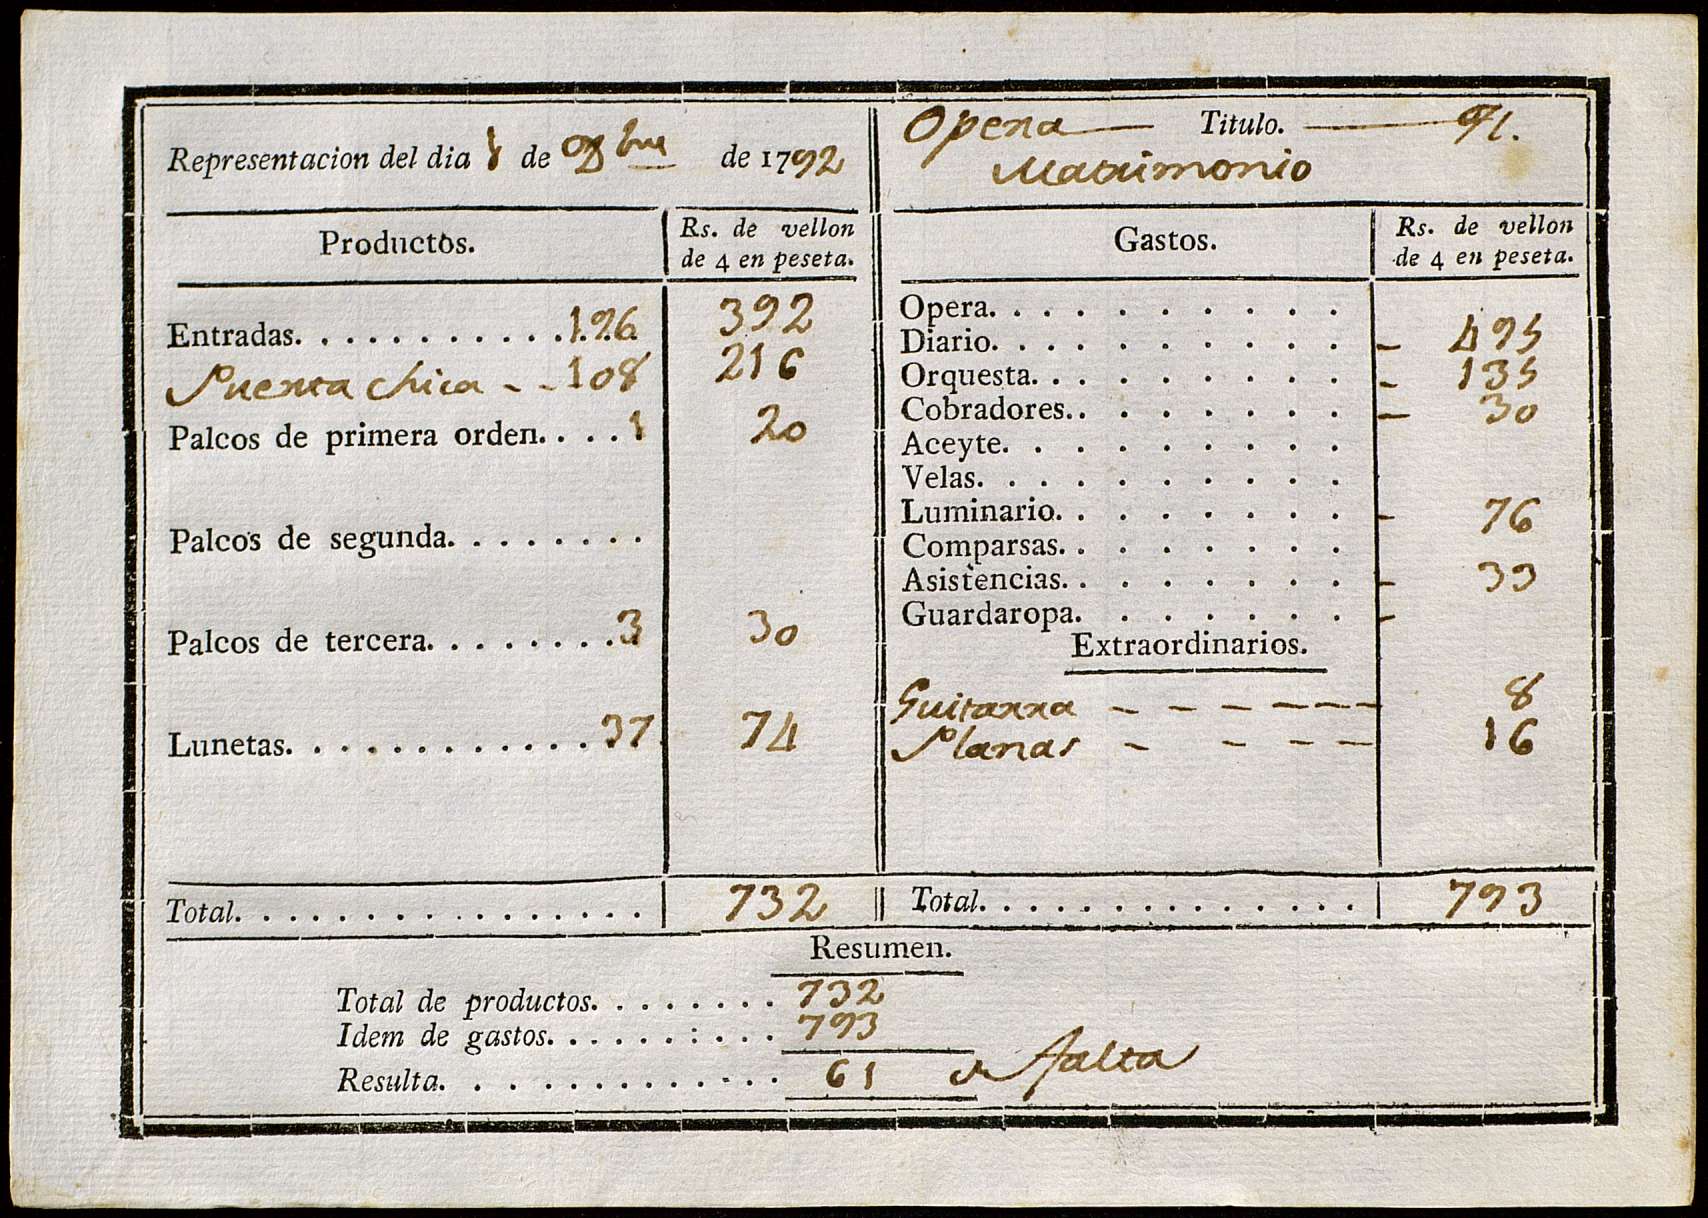 Representacion del dia de de 1792
Opera Titulo. El.
Matrimonio
Productos. Rs. de vellon de 4 en peseta.
Entradas. . . . . . . . . . . 196 392
Puerta chica - - 108 216
Palcos de primera orden. . . . 1 20
Palcos de segunda. . . . . . . .
Palcos de tercera. . . . . . . . 3 30
Lunetas. . . . . . . . . . . . . 37 74
Total. . . . . . . . . . . . . . . . 732
Gastos. Rs. de vellon de 4 en peseta.
Opera. . . . . . . . . .
Diario. . . . . . . . . . - 495
Orquesta. . . . . . . . . - 135
Cobradores. . . . . . . . - 30
Aceyte. . . . . . . . .
Velas. . . . . . . . . .
Luminario. . . . . . . . - 76
Comparsas. . . . . . . .
Asistencias. . . . . . . . - 33
Guardaropa. . . . . . . -
Extraordinarios.
Guitarra - - - - - - - 8
Planas - - - - - 16
Total. . . . . . . . . . . . . . . 793
Resumen.
Total de productos. . . . . . . . 732
Idem de gastos. . . . . . : . . . 793
Resulta. . . . . . . . . . . . . . 61 de falta